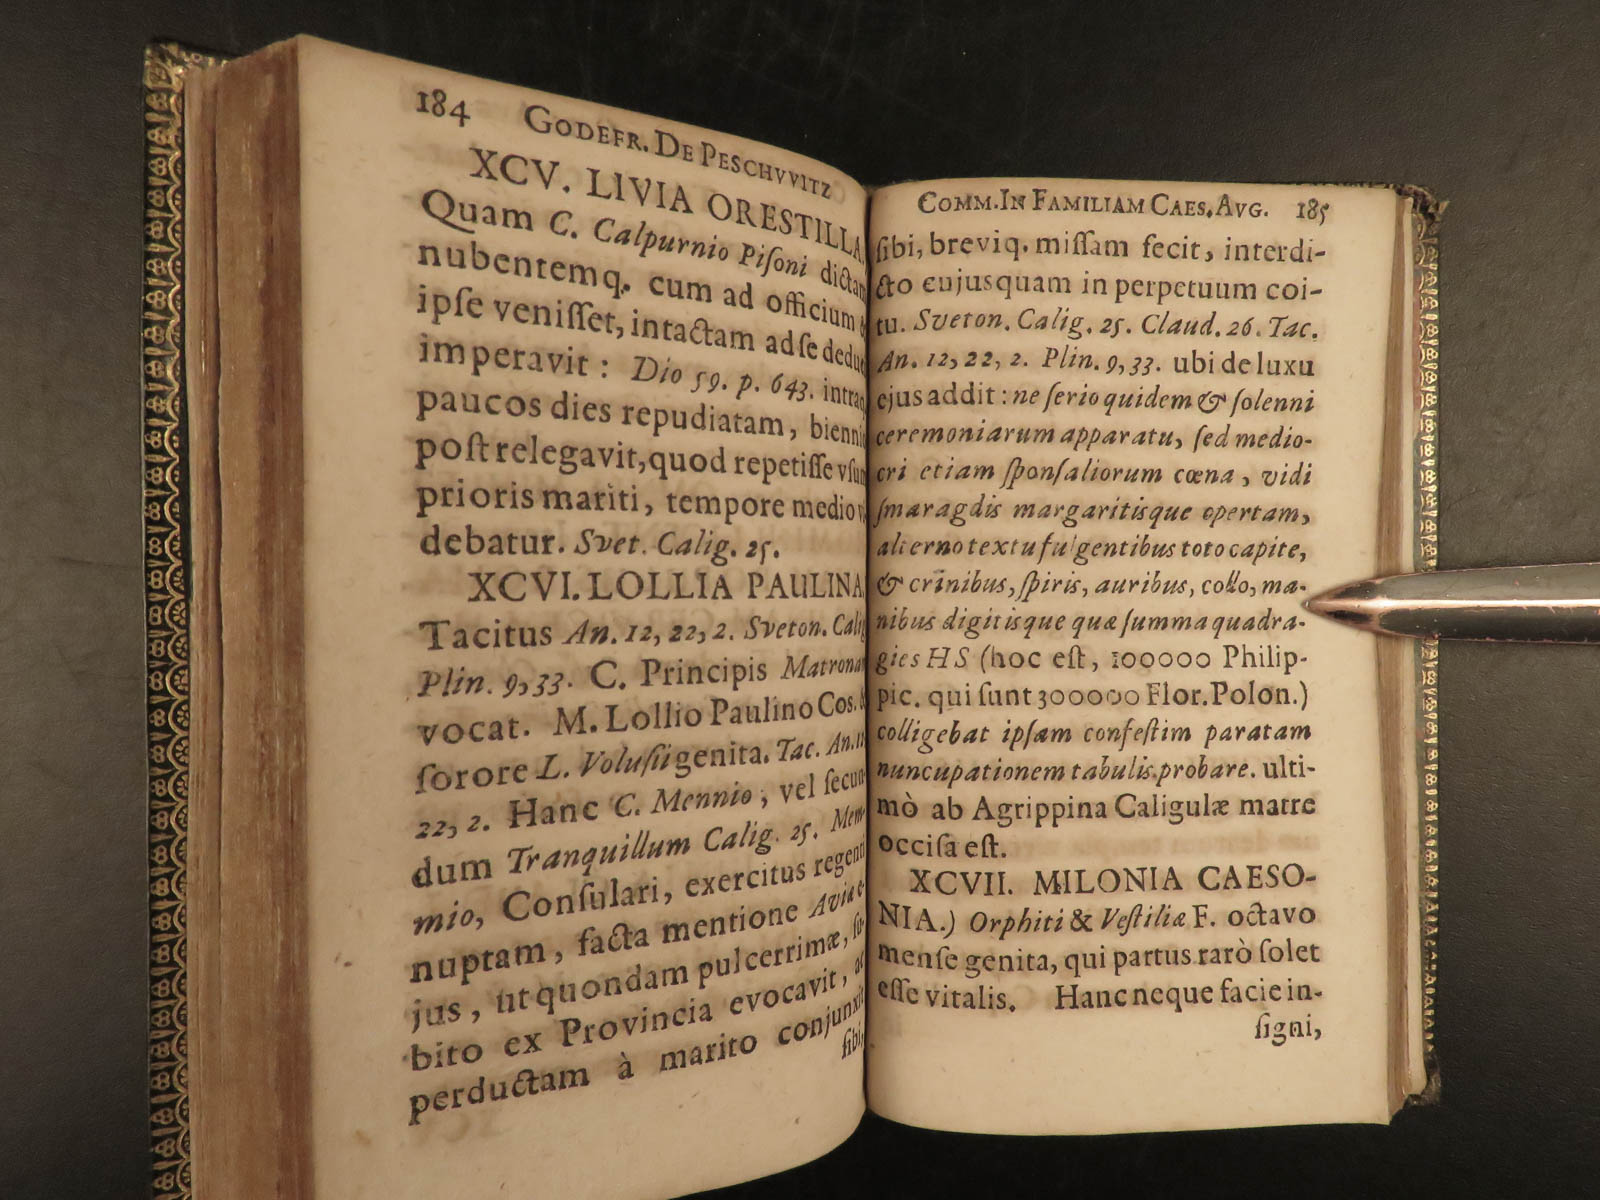 184 GODEFR. DE PESCHVVITZ
XCV. LIVIA ORESTILLA
Quam C. Calpurnio Piſoni dictam
nubentemq. cum ad officium
ipſe veniſſet, intactam ad ſe
imperavit : Dio 59. p. 643.
paucos dies repudiatam,
poſt relegavit, quod repetiſſe
prioris mariti, tempore medio
debatur. Svet. Calig. 25.
XCVI. LOLLIA PAULINA
Tacitus An. 12, 22, 2. Sveton. Calig
Plin. 9, 33. C. Principis
vocat. M. Lollio Paulino Cos.
ſorore L. Voluſii genita. Tac. An.
22, 2. Hanc C. Mennio, vel ſecun-
dum Tranquillum Calig. 25. Mem-
mio, Conſulari, exercitus regenti
nuptam, facta mentione Aviæ e-
jus, ut quondam pulcerrimæ, ſu-
bito ex Provincia evocavit, ac
perductam à marito conjunxit
ſibi,
COMM. IN FAMILIAM CAES. AVG. 185
ſibi, breviq. miſſam fecit, interdi-
cto cujusquam in perpetuum coi-
tu. Sveton. Calig. 25. Claud. 26. Tac.
An. 12, 22, 2. Plin. 9, 33. ubi de luxu
ejus addit : ne ſerio quidem & ſolenni
ceremoniarum apparatu, ſed medio-
cri etiam ſponſaliorum cœna, vidi
ſmaragdis margaritisque opertam,
alterno textu fulgentibus toto capite,
& crinibus, ſpiris, auribus, collo, ma-
nibus digitisque quæ ſumma quadra-
gies HS (hoc eſt, 100000 Philip-
pic. qui ſunt 300000 Flor. Polon.)
colligebat ipſam confeſtim paratam
nuncupationem tabulis probare. ulti-
mò ab Agrippina Caligulæ matre
occiſa eſt.
XCVII. MILONIA CAESO-
NIA.) Orphiti & Veſtiliæ F. octavo
menſe genita, qui partus rarò ſolet
eſſe vitalis. Hanc neque facie in-
ſigni,